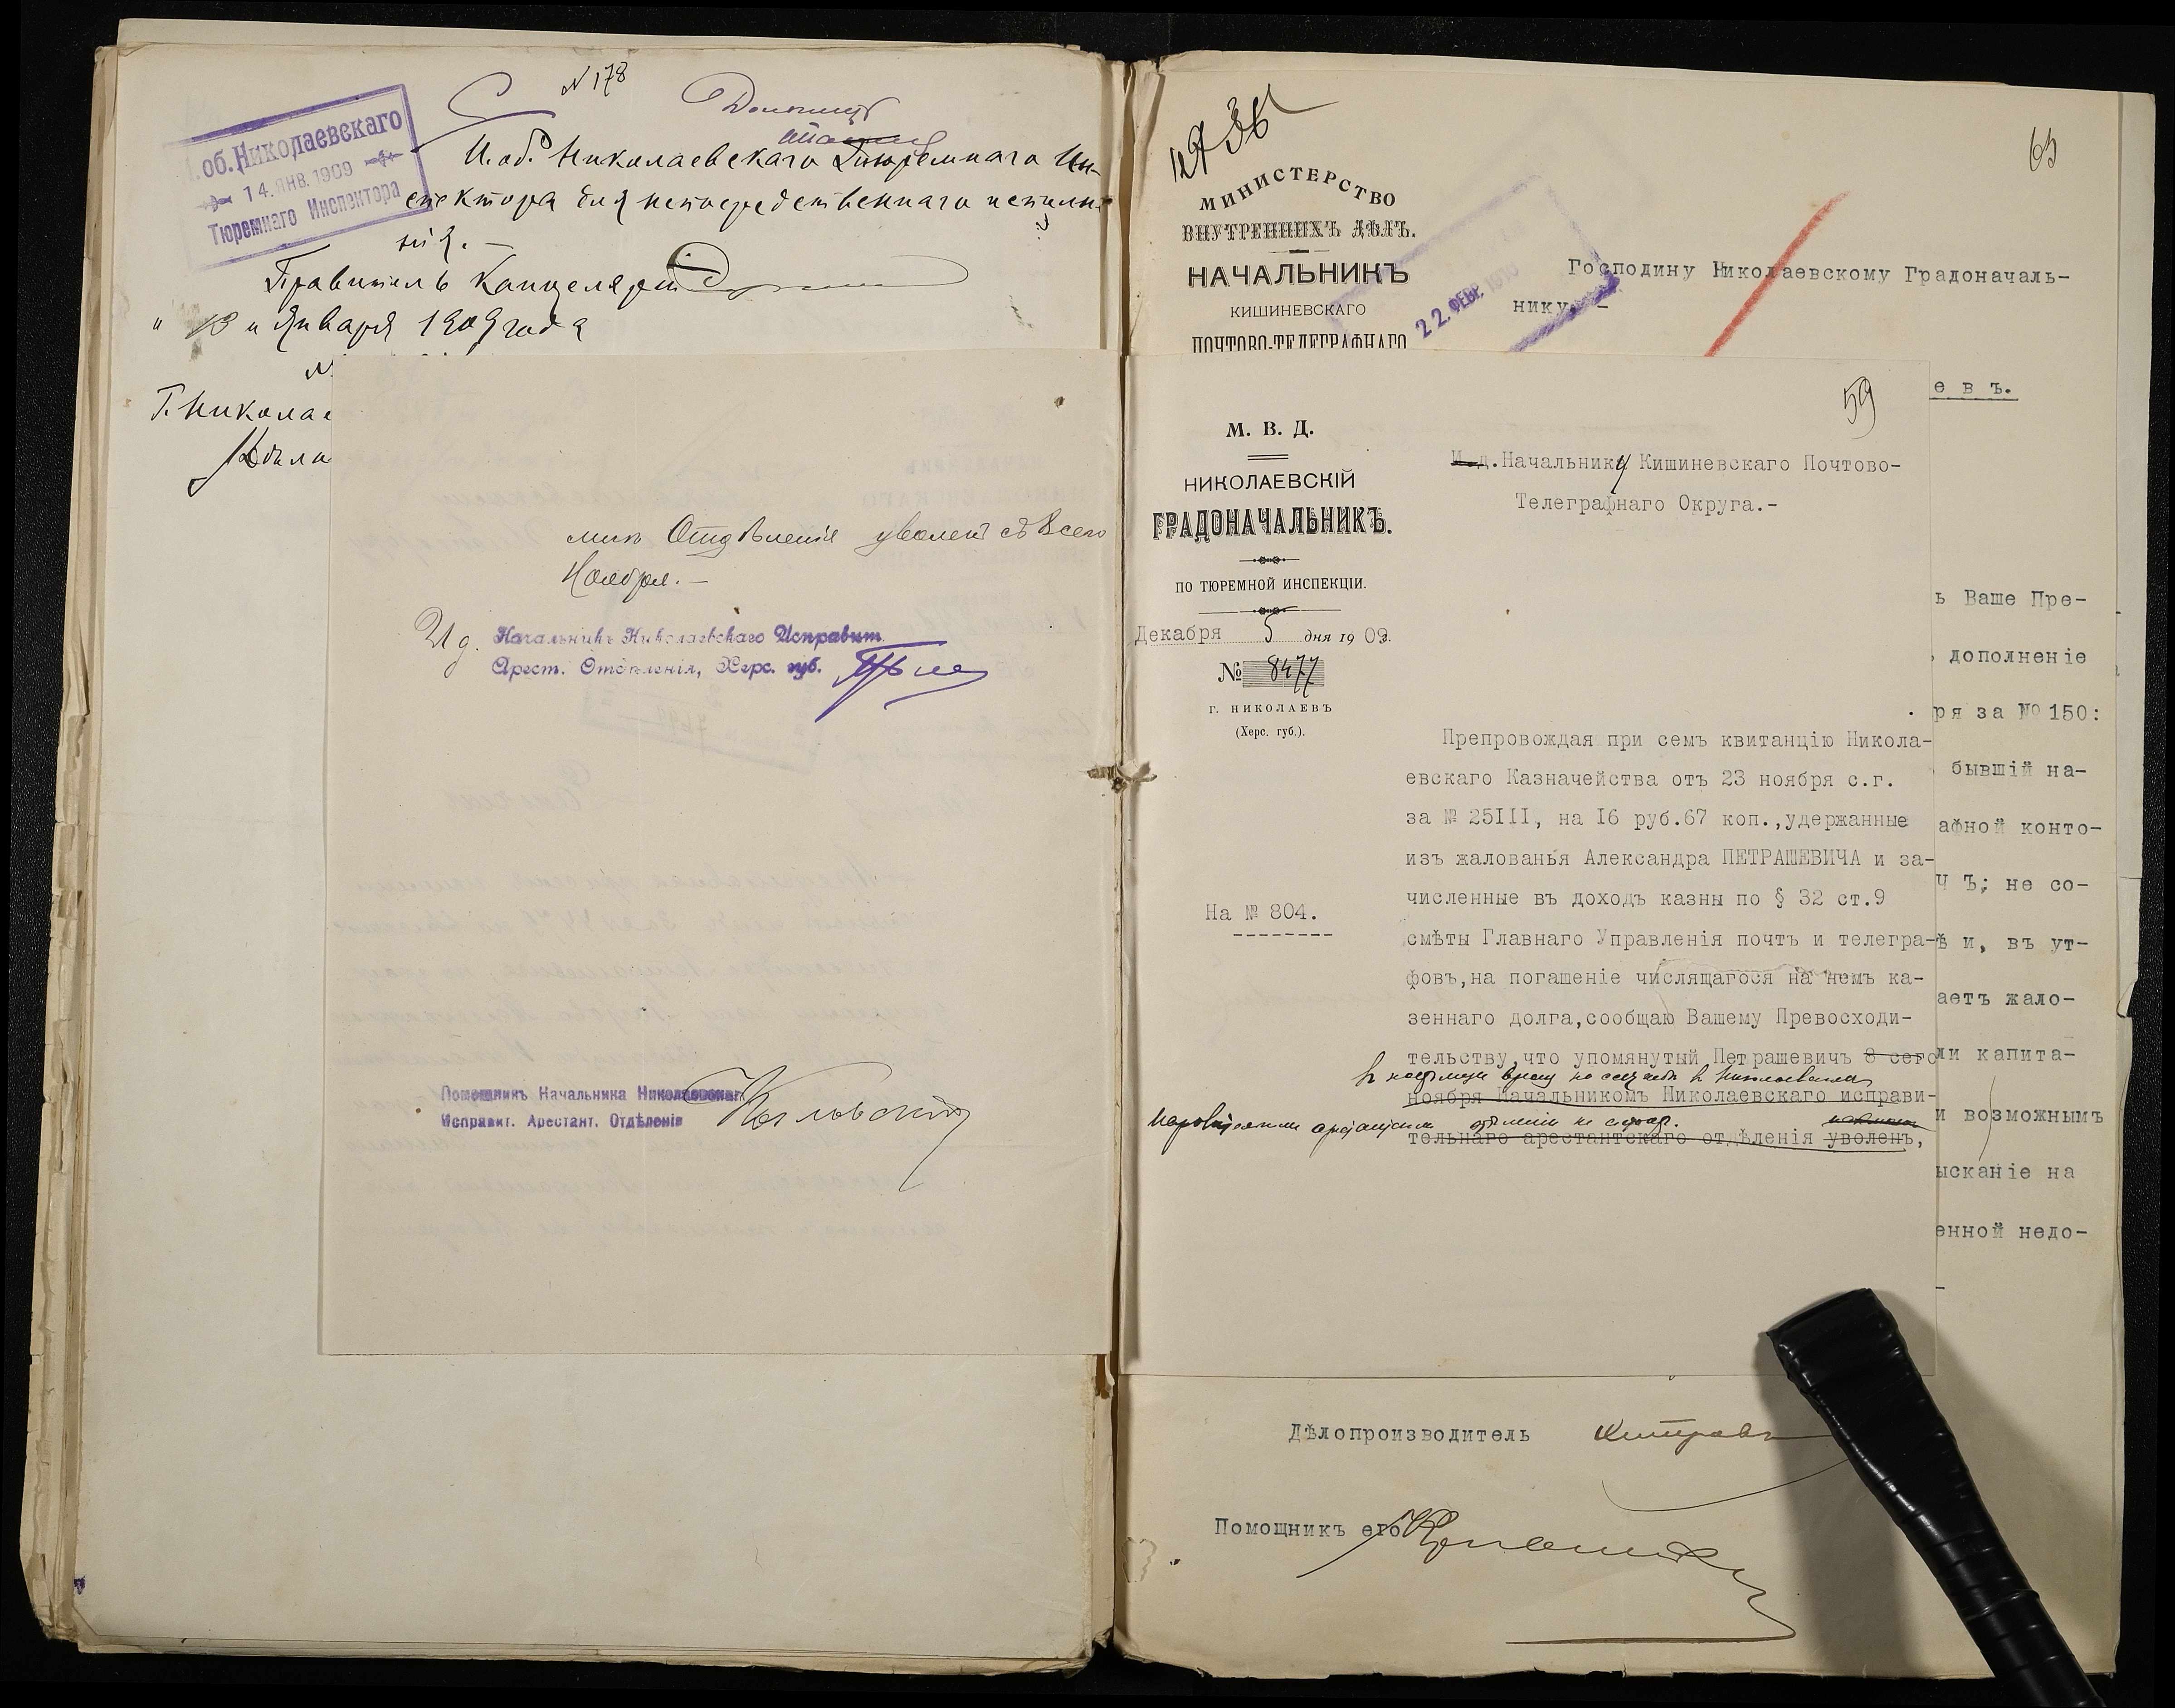 № 178
об. Николаевскаго
14. ЯНВ. 1909
Тюремнаго Инспектора
И. об. Николаевскаго Тюремнаго Ин-
спектора для непосредственнаго исполне-
нія. —
Правитель Канцеляріи
" 13 " Января 1909 года
Г. Никола
мъ Отдѣленія уволенъ съ 8 сего
Ноября. —
И д. Начальникъ Николаевскаго Исправит.
Арест. Отдѣленія, Херс. губ.
Помощникъ Начальника Николаевскаг
Исправит. Арестант. Отдѣленія
65
МИНИСТЕРСТВО
ВНУТРЕННИХЪ ДѢЛЪ.
НАЧАЛЬНИКЪ
КИШИНЕВСКАГО
ПОЧТОВО-ТЕЛЕГРАФНАГО
22. ФЕВР. 1910
Господину Николаевскому Градоначаль-
нику. -
евъ.
ъ Ваше Пре-
дополненіе
ря за № 150:
бывшій на-
афной конто-
Ч Ъ; не со-
ѣ и, въ ут-
аетъ жало-
ли капита-
и возможнымъ
ысканіе на
енной недо-
-
Дѣлопроизводитель
Помощникъ его
59
М. В. Д.
НИКОЛАЕВСКІЙ
ГРАДОНАЧАЛЬНИКЪ.
ПО ТЮРЕМНОЙ ИНСПЕКЦІИ.
Декабря 5 дня 1909г.
№ 8477
г. НИКОЛАЕВЪ
(Херс. губ.).
На № 804.
И.д.Начальнику Кишиневскаго Почтово-
Телеграфнаго Округа.-
Препровождая при семъ квитанцію Никола-
евскаго Казначейства отъ 23 ноября с.г.
за № 25III, на I6 руб.67 коп.,удержанные
изъ жалованья Александра ПЕТРАШЕВИЧА и за-
численные въ доходъ казны по § 32 ст.9
смѣты Главнаго Управленія почтъ и телегра-
фовъ,на погашеніе числящагося на немъ ка-
зеннаго долга,сообщаю Вашему Превосходи-
тельству,что упомянутый Петрашевичъ 8 сего
ноября Начальникомъ Николаевскаго исправи-
тельнаго арестантскаго отдѣленія уволенъ,